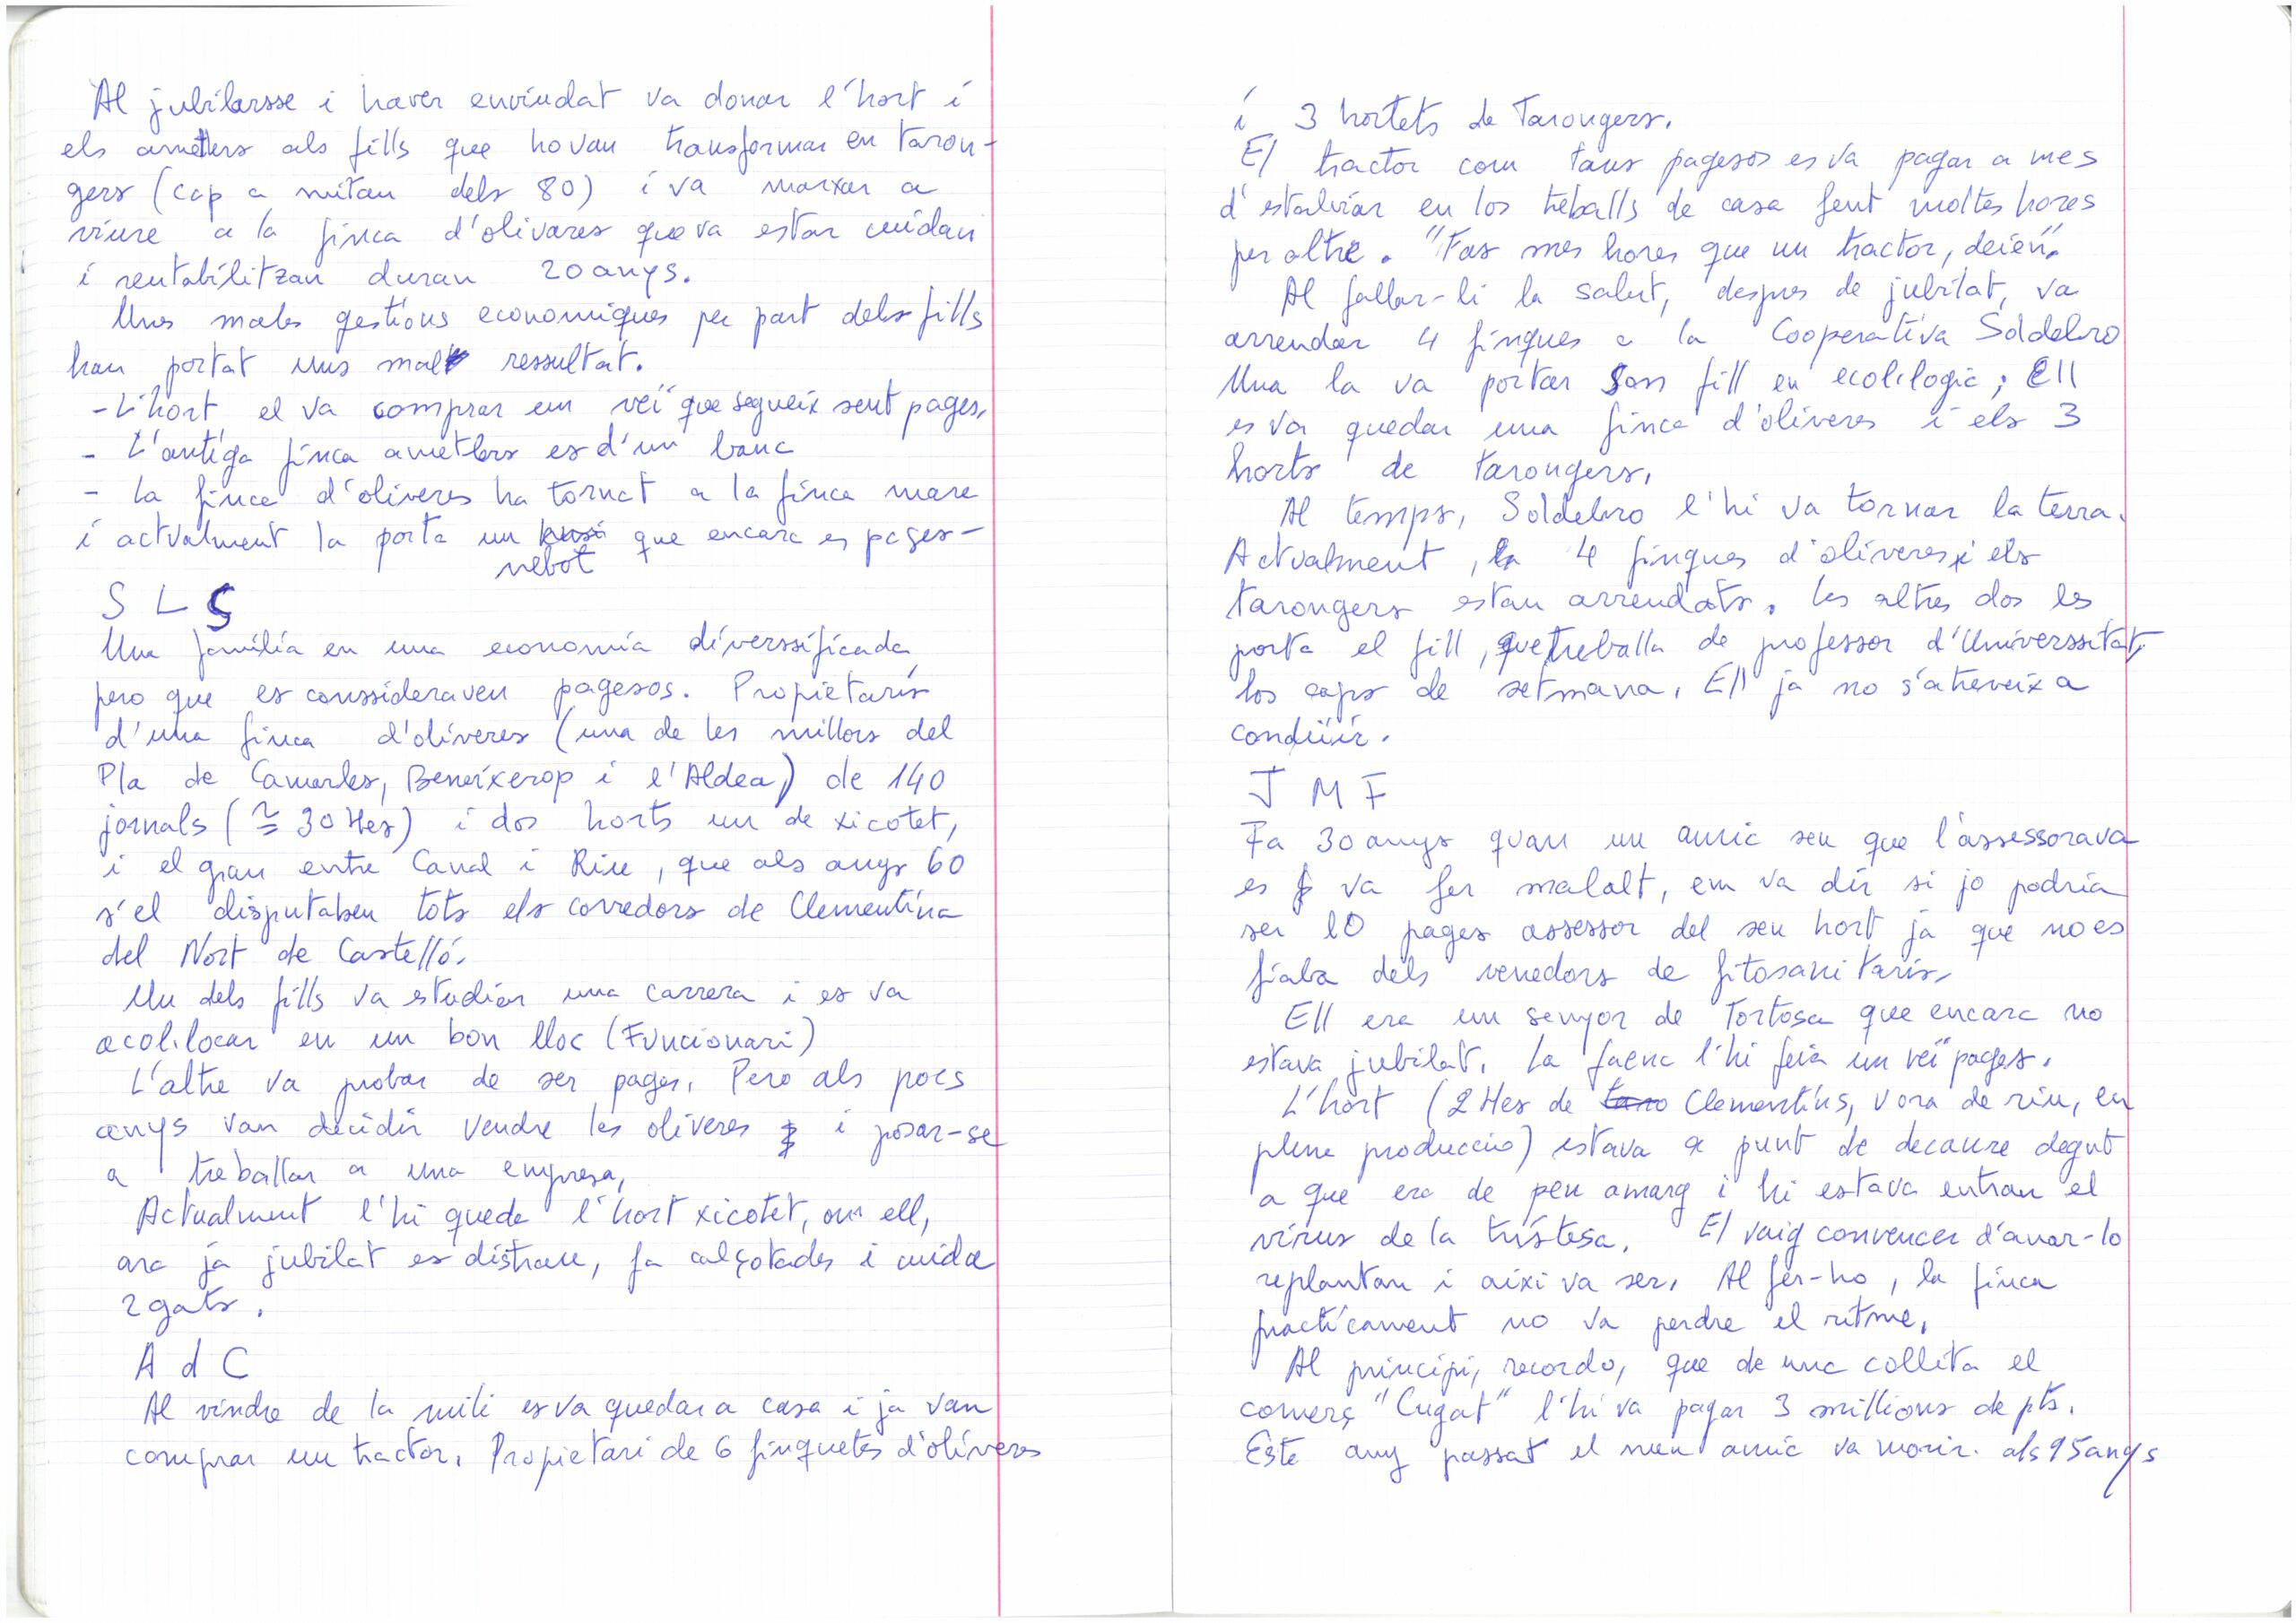 Al jubilarsse i haver enviudat va donar l'hort i
els ametlers als fills que ho van transformar en taron-
gers (cap a mitan dels 80) i va marxar a
viure a la finca d'olivares que va estar cuidan
i rentabilitzan duran 20 anys.
Unes males gestions economiques per part dels fills
han portat uns mal ressultat.
- L'hort el va comprar un veï que segueix sent pages,
- L'antiga finca ametlers es d'un banc
- La finca d'oliveres ha tornat a la finca mare
i actualment la porta un nebot que encara es pages-
S L S
Una familia en una economia diverssificada
pero que es conssideraven pagesos. Propietaris
d'una finca d'oliveres (una de les millors del
Pla de Camarles, Beneixerop i l'Aldea) de 140
jornals (≅ 30 Hes) i dos horts un de xicotet,
i el gran entre Canal i Riu, que als anys 60
s'el disputaben tots els corredors de Clementina
del Nort de Castelló.
Un dels fills va estudiar una carrera i es va
acol·locar en un bon lloc (Funcionari)
L'altre va probar de ser pages. Pero als pocs
anys van decidir vendre les oliveres i posar-se
a treballar a una empresa,
Actualment l'hi queda l'hort xicotet, on ell,
ara ja jubilat es distrau, fa calçotades i cuida
2 gats.
A d C
Al vindre de la mili es va quedar a casa i ja van
comprar un tractor. Propietari de 6 finquetes d'oliveres
i 3 hortets de Tarongers.
El tractor com tans pagesos es va pagar a mes
d'estalviar en los treballs de casa fent moltes hores
per altre. "Fas mes hores que un tractor, deien".
Al fallar-li la salut, despres de jubilat, va
arrendar 4 finques a la Cooperativa Soldebro
Una la va portar son fill en ecol·logic; Ell
es va quedar una finca d'oliveres i els 3
horts de tarongers.
Al temps, Soldebro l'hi va tornar la terra.
Actualment, 4 finques d'oliveres i els
tarongers estan arrendats. Les altres dos les
porta el fill, que treballa de professor d'Universsitat,
los caps de setmana. Ell ja no s'atreveix a
conduïr.
J M F
Fa 30 anys quan un amic seu que l'assessorava
es va fer malalt, em va dir si jo podria
ser lo pages assessor del seu hort ja que no es
fiaba dels venedors de fitosanitaris,
Ell era un senyor de Tortosa que encara no
estava jubilat. La faena l'hi feia un veï pages.
L'hort (2 Hes de Clementins, vora de riu, en
plena produccio) estava a punt de decaure degut
a que era de peu amarg i hi estava entran el
virus de la tristesa. El vaig convencer d'anar-lo
replantan i aixi va ser. Al fer-ho, la finca
practicament no va perdre el ritme,
Al principi, recordo, que de una collita el
comerç "Cugat" l'hi va pagar 3 millions de pts.
Este any passat el meu amic va morir als 95 anys